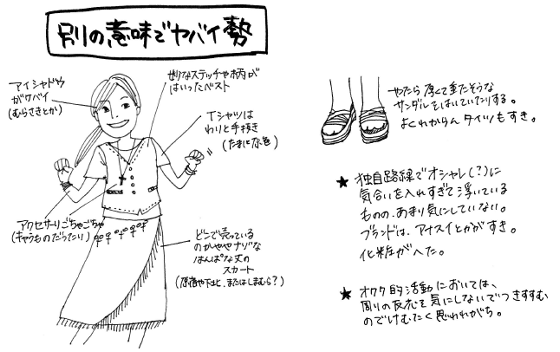 別の意味でヤバイ勢
アイシャドウ
がケバイ
(むらさきとか)
妙なステッチや柄が
はいったベスト
Tシャツは
わりと手抜き
(たまに灰色)
アクセサリごちゃごちゃ
(キラものだったり)
どこで売っている
のかややナゾな
はんぱな丈の
スカート
(原宿や下北、またはしまむら?)
やたら厚くて重たそうな
サンダルをはいていたりする。
よくわからんタイツもすき。
★ 独自路線でオシャレ(?)に
気合いを入れすぎて浮いている
ものの、あまり気にしていない。
ブランドは、アナスイとかがすき。
化粧がへた。
★ オタク的活動においては、
周りの反応を気にしないでつきすすむ
のでけむたく思われがち。